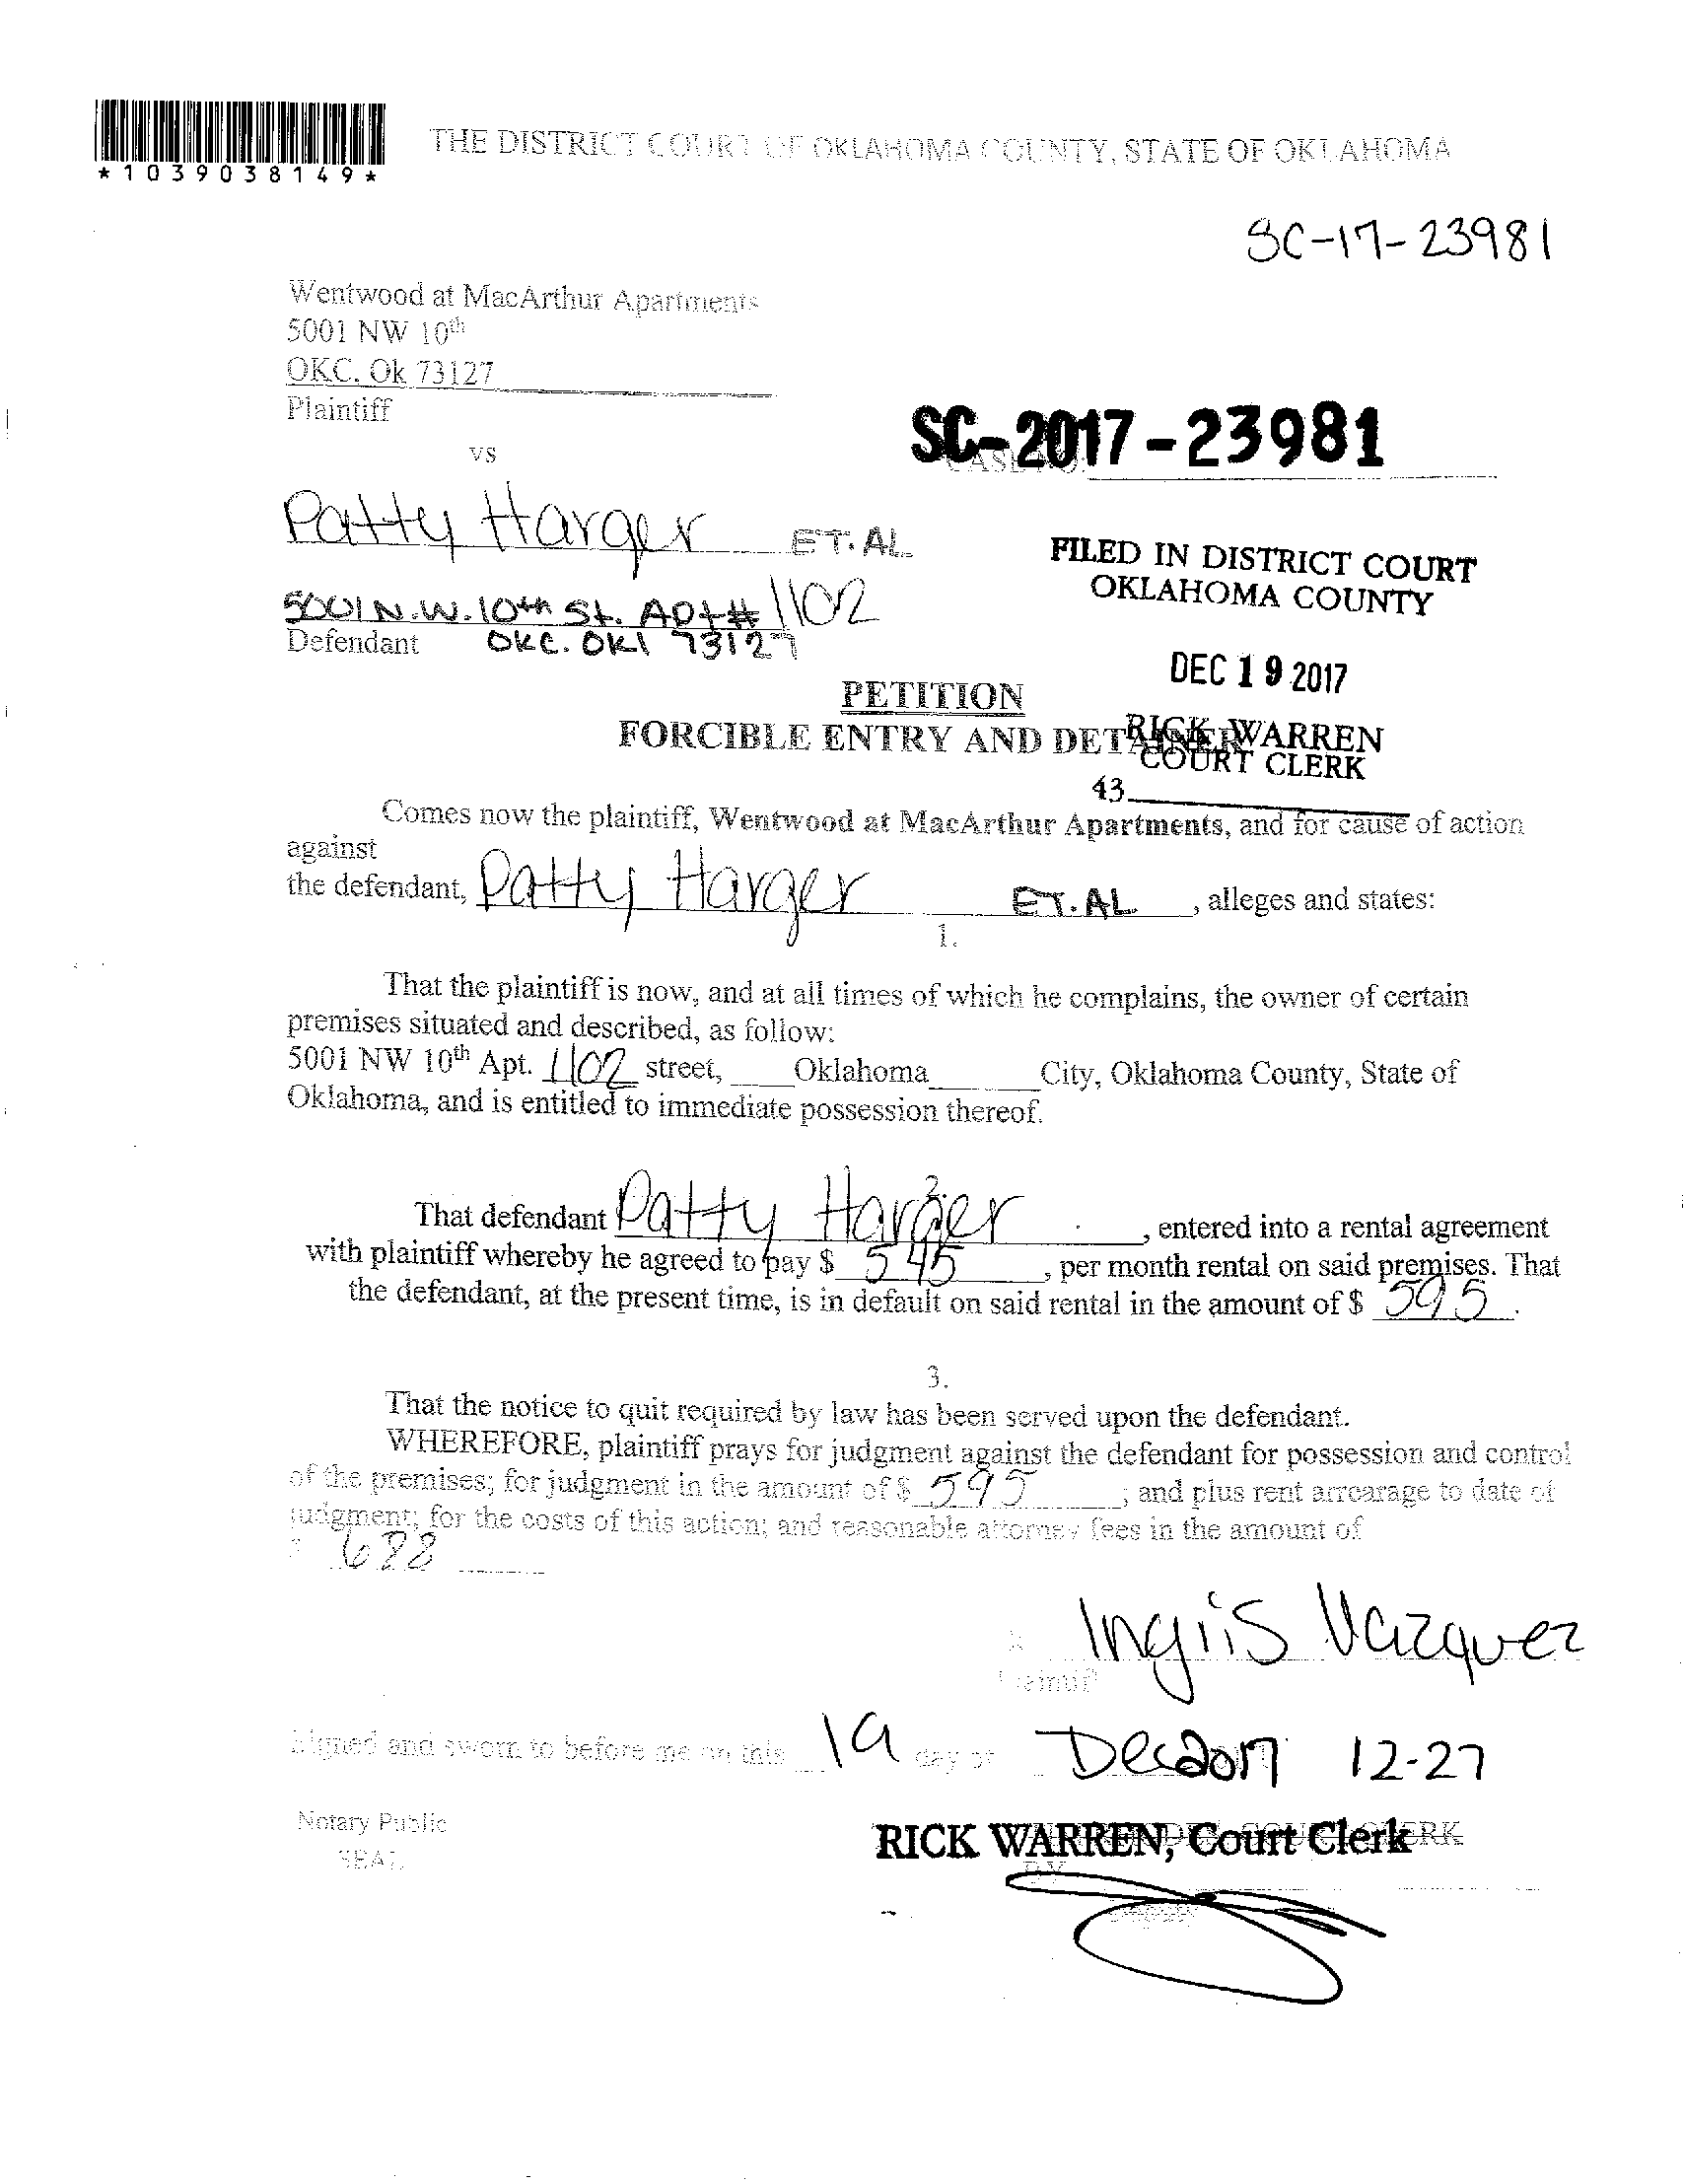 *1039038149*
THE DISTRICT COURT OF OKLAHOMA COUNTY, STATE OF OKLAHOMA
SC-17-23981
Wentwood at MacArthur Apartments
5001 NW 10th
OKC, Ok 73127
Plaintiff
vs
SC-2017-23981
Patty Harger ET.AL
5001 N.W. 10th St. Apt# 1102
Defendant OKC. OKl 73127
FILED IN DISTRICT COURT
OKLAHOMA COUNTY
DEC 19 2017
RICK WARREN
COURT CLERK
43
PETITION
FORCIBLE ENTRY AND DETAINER
Comes now the plaintiff, Wentwood at MacArthur Apartments, and for cause of action
against
the defendant, Patty Harger ET.AL , alleges and states:
1.
That the plaintiff is now, and at all times of which he complains, the owner of certain
premises situated and described, as follow:
5001 NW 10th Apt. 1102 street, Oklahoma City, Oklahoma County, State of
Oklahoma, and is entitled to immediate possession thereof.
2.
That defendant Patty Harger , entered into a rental agreement
with plaintiff whereby he agreed to pay $ 545 , per month rental on said premises. That
the defendant, at the present time, is in default on said rental in the amount of $ 595.
3.
That the notice to quit required by law has been served upon the defendant.
WHEREFORE, plaintiff prays for judgment against the defendant for possession and control
of the premises; for judgment in the amount of $ 595 ; and plus rent arrearage to date of
judgment; for the costs of this action; and reasonable attorney fees in the amount of
Ingris Vazquez
Plaintiff
Signed and sworn to before me on this 19 day of Dec 2017 12-27
Notary Public
SEAL
RICK WARREN, Court Clerk
BY
Deputy